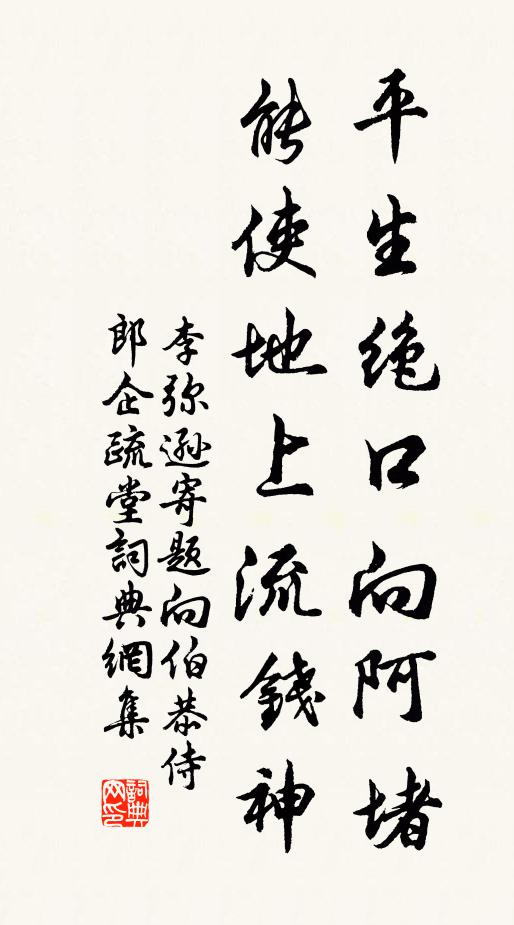 平生绝口向阿堵
能使地上流錢神
李弥遜寄題向伯恭侍
郎企疏堂詞典網集
詞典
网印